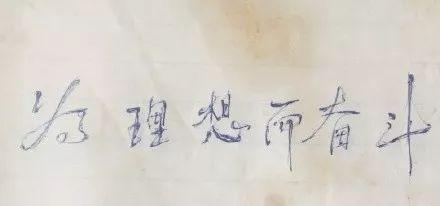 为理想而奋斗